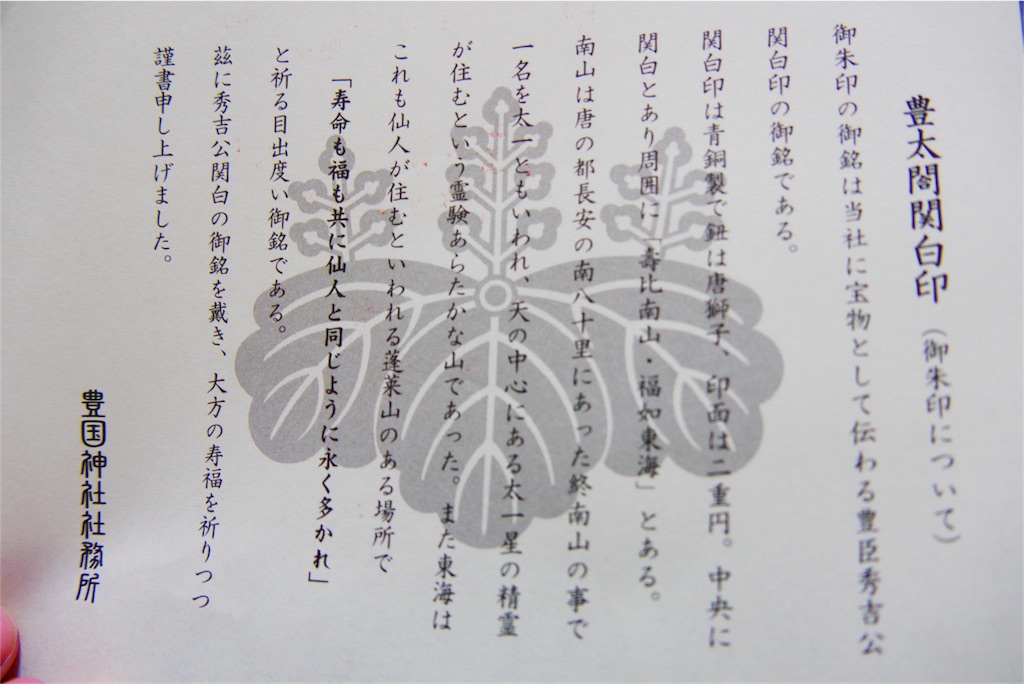 豊太閤関白印(御朱印について)
御朱印の御銘は当社に宝物として伝わる豊臣秀吉公
関白印の御銘である。
関白印は青銅製で鈕は唐獅子、印面は二重円。中央に
関白とあり周囲に「寿比南山・福如東海」とある。
南山は唐の都長安の南八十里にあった終南山の事で
一名を太一ともいわれ、天の中心にある太一星の精霊
が住むという霊験あらたかな山であった。また東海は
これも仙人が住むといわれる蓬莱山のある場所で
「寿命も福も共に仙人と同じように永く多かれ」
と祈る目出度い御銘である。
茲に秀吉公関白の御銘を戴き、大方の寿福を祈りつつ
謹書申し上げました。
豊国神社社務所